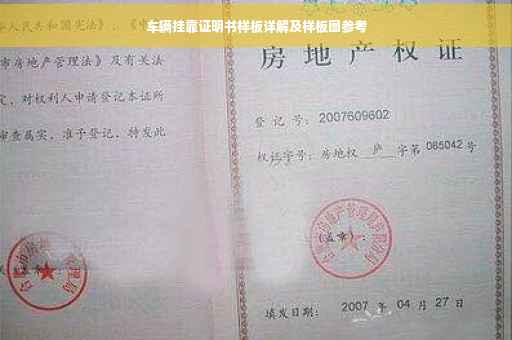 车辆挂靠证明书样板详解及样板图参考
人民共和国宪法》、《中
市房地产管理法》及有关法
定，对权利人申请登记本证所
审查属实，准予登记，特发此
房地产权证
登记号：2007609602
权证字号：房地权 庐 字第 065042 号
（盖章）：
填发日期： 2007 年 04 月 27 日